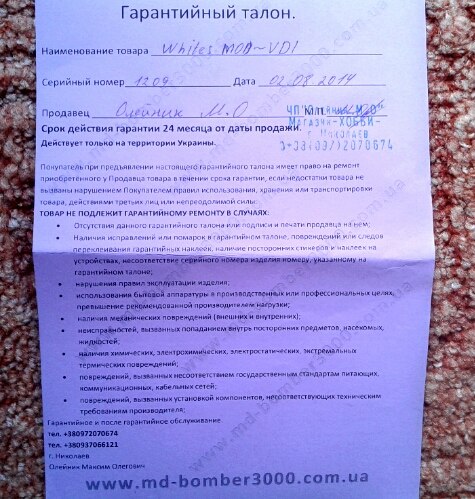 Гарантийный талон.
Наименование товара Whites MOD~VDI
Серийный номер 1209 Дата 02.08.2014
Продавец Олейник М.О М.П.
ЧП "Олейник М.О"
Магазин-ХОББИ-
г Николаев
Срок действия гарантии 24 месяца от даты продажи.
Действует только на территории Украины.
Покупатель при предъявлении настоящего гарантийного талона имеет право на ремонт
приобретённого у Продавца товара в течении срока гарантии, если недостатки товара не
вызваны нарушением Покупателем правил использования, хранения или транспортировки
товара, действиями третьих лиц или непреодолимой силы:
ТОВАР НЕ ПОДЛЕЖИТ ГАРАНТИЙНОМУ РЕМОНТУ В СЛУЧАЯХ:
• Отсутствия данного гарантийного талона или подписи и печати продавца на нем;
• Наличия исправлений или помарок в гарантийном талоне, повреждений или следов
переклеивания гарантийных наклеек, наличие посторонних стикеров и наклеек на
устройствах, несоответствие серийного номера изделия номеру, указанному на
гарантийном талоне;
• нарушения правил эксплуатации изделия;
• использования бытовой аппаратуры в производственных или профессиональных целях,
превышение рекомендованной производителем нагрузки;
• наличия механических повреждений (внешних и внутренних);
• неисправностей, вызванных попаданием внутрь посторонних предметов, насекомых,
жидкостей;
• наличия химических, электрохимических, электростатических, экстремальных
термических повреждений;
• повреждений, вызванных несоответствием государственным стандартам питающих,
коммуникационных, кабельных сетей;
• повреждений, вызванных установкой компонентов, несоответствующих техническим
требованиям производителя;
Гарантийное и после гарантийное обслуживание
тел. +380972070674
тел. +380937066121
г. Николаев
Олейник Максим Олегович
www.md-bomber3000.com.ua